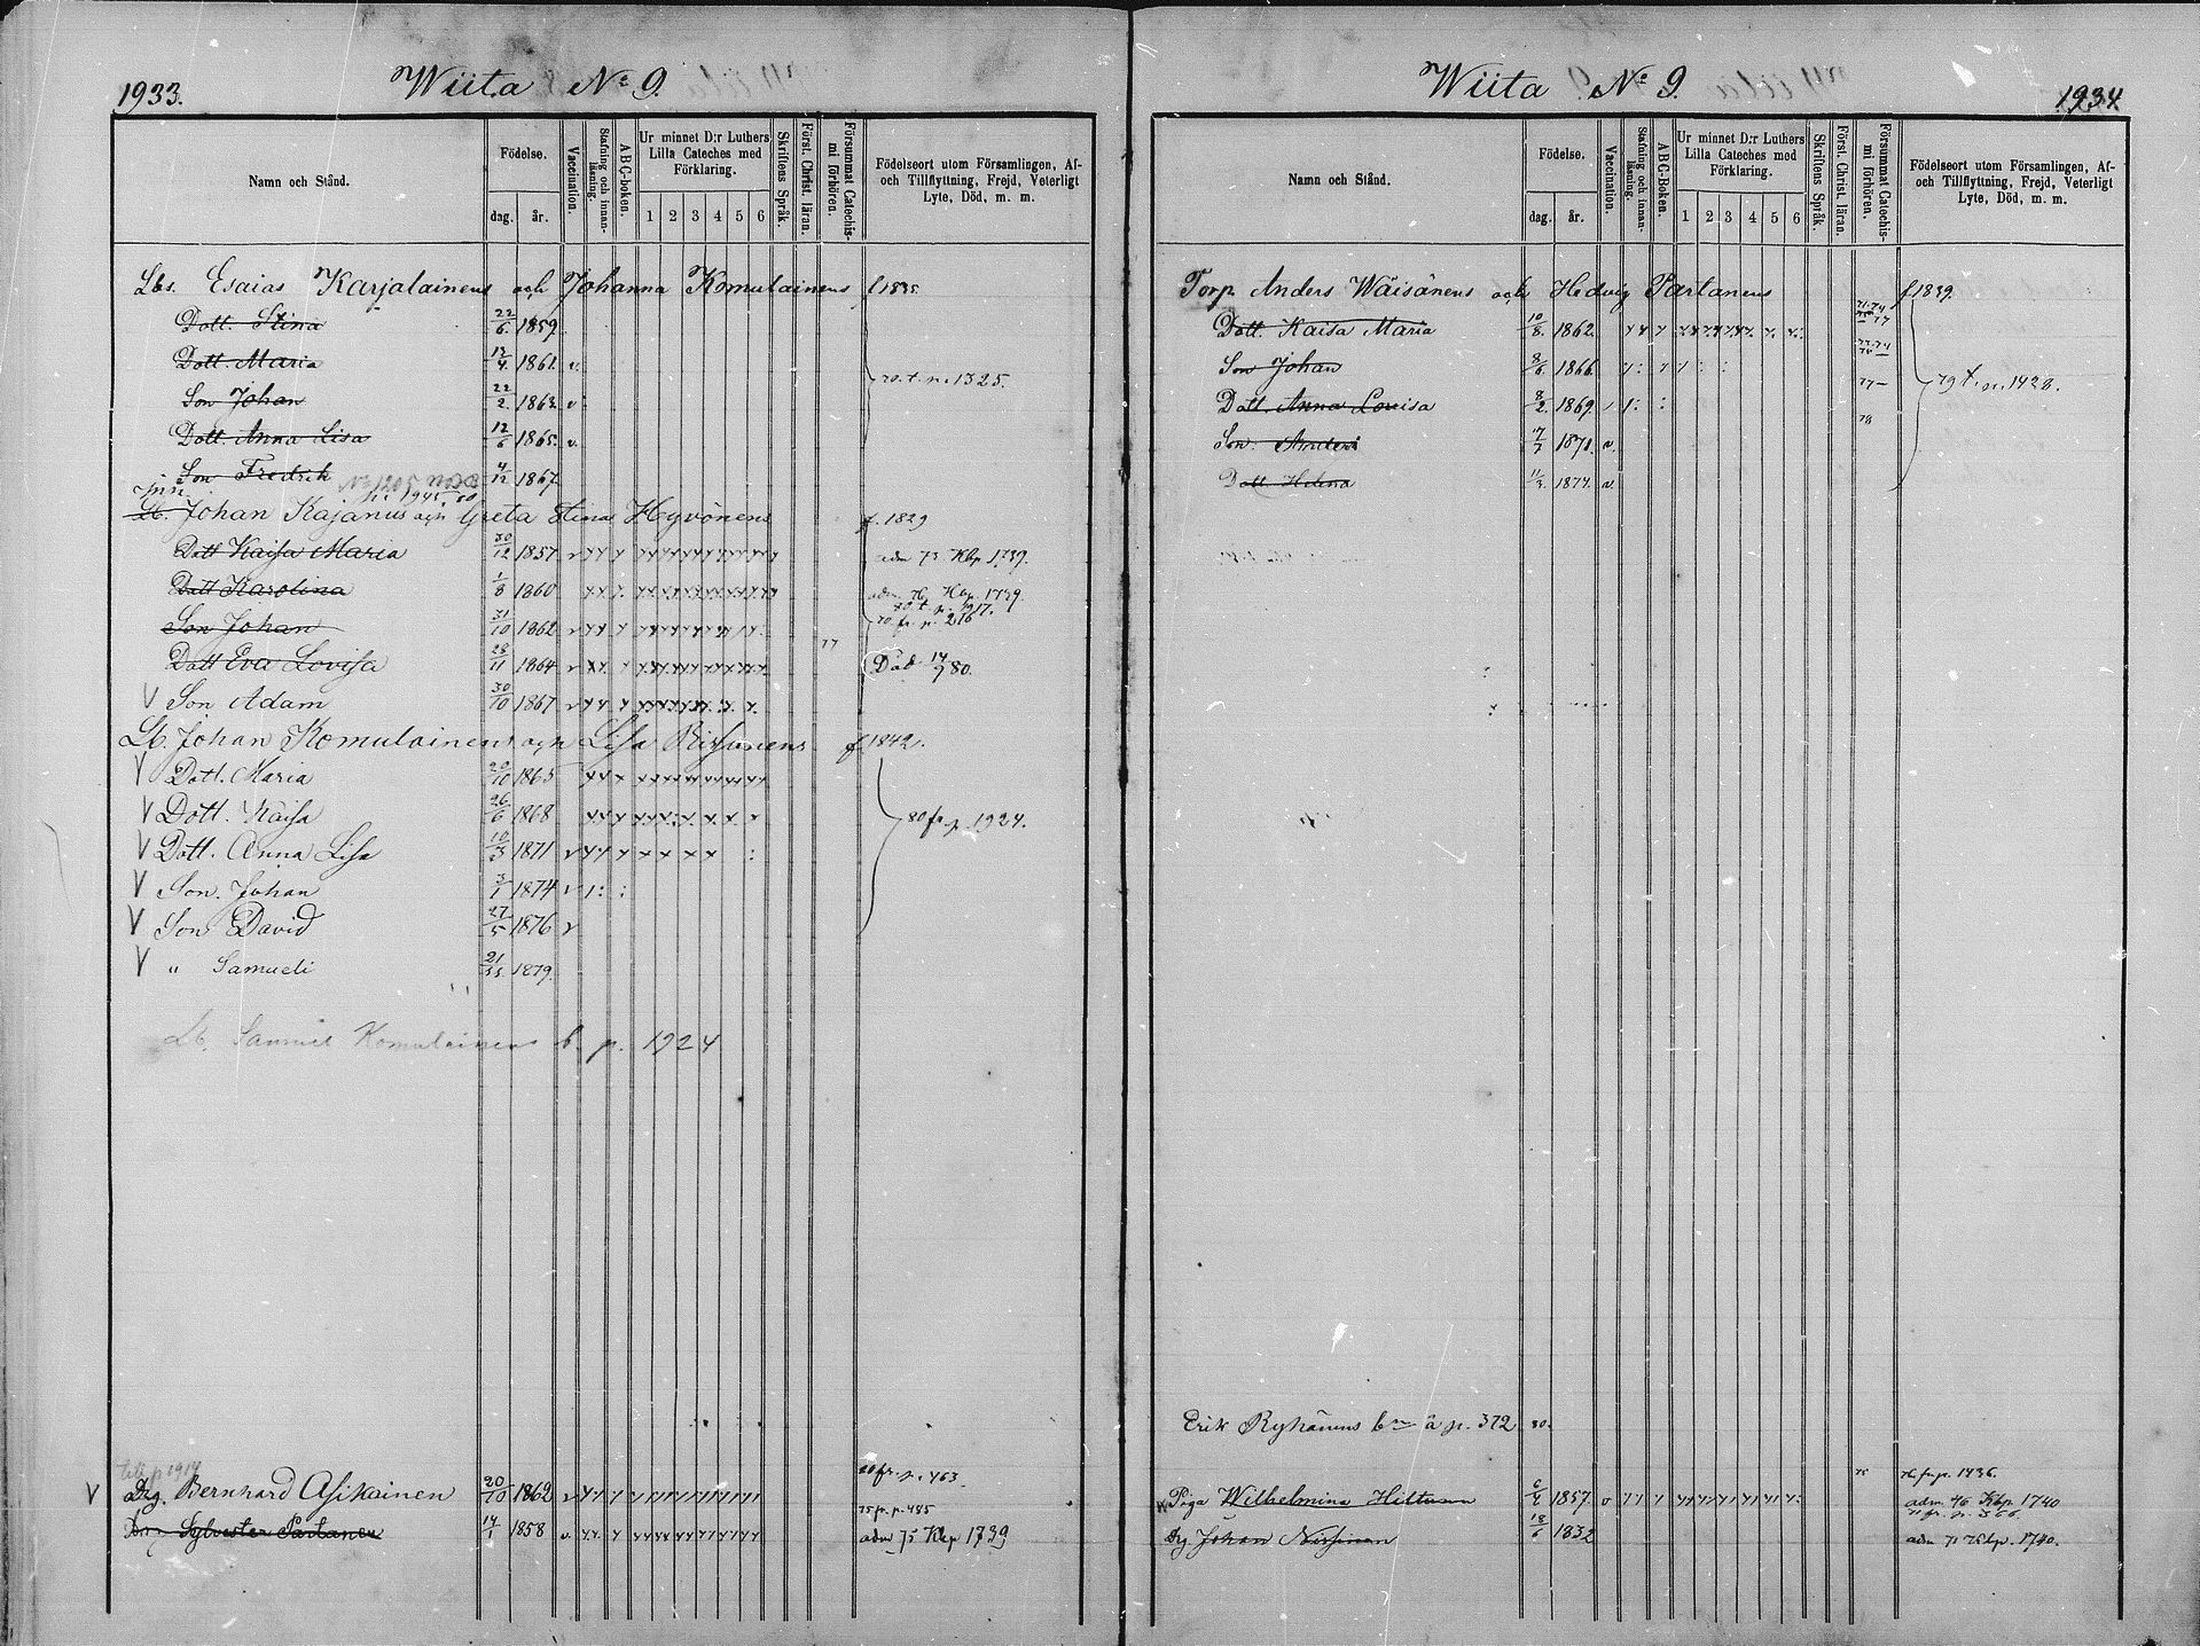 1933.
Wiita No 9.
Namn och Stånd.
Födelse.
dag.
år.
Vaccination.
Stafning och innan-läsning.
ABC-boken.
Ur minnet D:r Luthers Lilla Cateches med Förklaring.
1 2 3 4 5 6
Skriftens Språk.
Först. Christ. läran.
Försummat Catechis-mi förhören.
Födelseort utom Församlingen, Af- och Tillflyttning, Frejd, Veterligt Lyte, Död, m. m.
Lbs. Esaias Karjalainens och Johanna Komulainens f 1835.
Dott. Stina 22/6. 1859.
Dott. Maria 1861. v.
Son Johan 22/2. 1863 v.
70. t. p. 1325.
Dott. Anna Lisa 12/6 1865. v.
Son Fredrik 4/12 1867.
Lb. Johan Kajanus och Greta Stina Hyvönens f. 1829
Dott Kaisa Maria 30/12 1857 v adm 73 Kbp 1739.
Dott Karolina 1/8 1860 adm. 76 Kbp. 1739.
80. t. p. 1917.
Son Johan 31/10 1862 v 70. fr. p. 216
77
Dott Eva Lovisa 28/11 1864 v Död 14/9 80.
V Son Adam 30/10 1867 v
Lb. Johan Komulainens och Lisa f 1842.
V Dott. Maria 20/10 1865
V Dott. Kaisa 26/6 1868
80 fr p. 1924.
V Dott. Anna Lisa 10/3 1871 v
V Son. Johan 3/1 1874 v
V Son David 27/5 1876 v
V " Samueli 1879.
Lb. Samuel Komulainens b. p. 1924
till p 1914
80 fr. p. 463
V Drg. Bernhard Asikainen 20/10 1862 v
75 fr. p. 485
Drg Sylvester Partanen 14/1 1858 v. adm 75 Kbp 1739
1934
Wiita No 9.
Namn och Stånd.
Födelse.
dag.
år.
Vaccination.
Stafning och innan-läsning.
ABC-Boken.
Ur minnet D:r Luthers Lilla Cateches med Förklaring.
1 2 3 4 5 6
Skriftens Språk.
Först. Christ. läran.
Försummat Catechis-mi förhören.
Födelseort utom Församlingen, Af- och Tillflyttning, Frejd, Veterligt Lyte, Död, m. m.
Torp Anders Wäisänens och Hedvig Partanens f 1839.
Dott. Kaisa Maria 10/8. 1862.
Son Johan 8/6 1866.
77
79 t. p. 1428.
Dott. Anna Lovisa 8/2. 1869.
78
Son. Anders 7/7 1871. v.
Dott Helena 11/3. 1877. v.
Erik Ryhänens bn å p. 372 80.
76 fr. p. 1436.
Piga Wilhelmina Hiltunen 6/4 1857. v adm. 76 Kbp 1740
71 fr. p. 366.
Drg Johan Nissinen 18/6 1832 adm 71 Kbp. 1740.